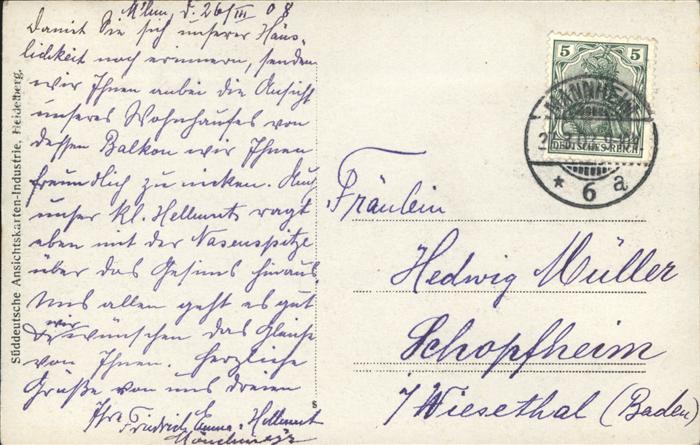 M'hm, d. 26/III 08
Damit Sie sich unserer Häus-
lichkeit noch erinnern, senden
wir Ihnen anbei die Ansicht
unseres Wohnhauses von
dessen Balkon wir Ihnen
freundlich zu nicken. Auch
unser kl. Hellmut ragt
eben mit der Nasenspitze
über das Gesims hinaus.
Uns allen geht es gut
wir wünschen das Gleiche
von Ihnen. Herzliche
Grüße von uns dreien
Ihr Friedrich, Emma, Hellmut
Süddeutsche Ansichtskarten-Industrie, Heidelberg.
S
5 5
DEUTSCHES REICH
MANNHEIM
* 6 a
Fräulein
Hedwig Müller
Schopfheim
i/Wiesethal (Baden)